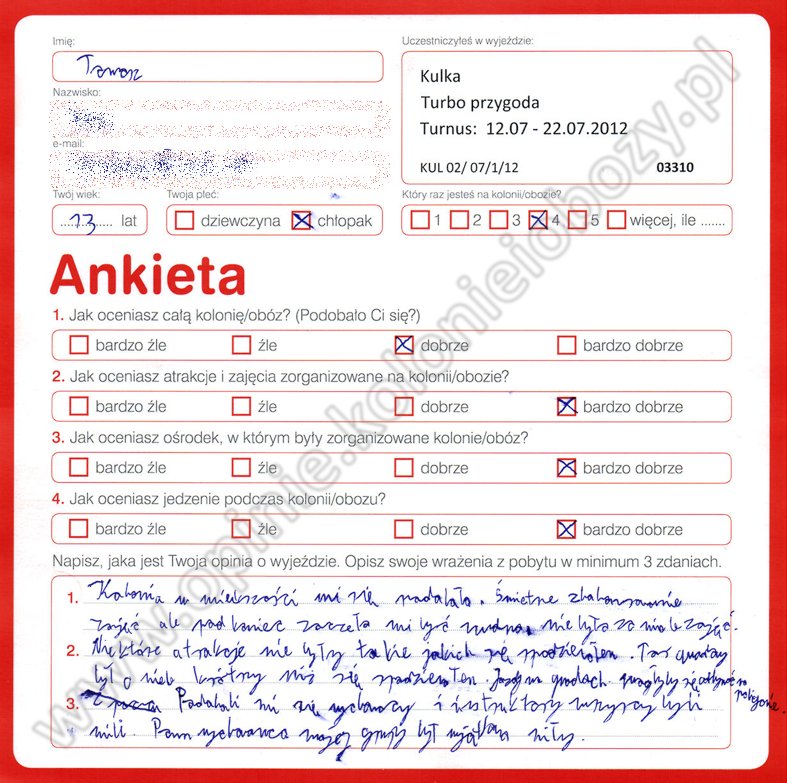 Imię:
Uczestniczyłeś w wyjeździe:
Tomasz
Kulka
Turbo przygoda
Turnus: 12.07 - 22.07.2012
KUL 02/ 07/1/12 03310
Nazwisko:
e-mail:
Twój wiek: Twoja płeć: Który raz jesteś na kolonii/obozie?
13 lat dziewczyna chłopak 1 2 3 4 5 więcej, ile .......
Ankieta
1. Jak oceniasz całą kolonię/obóz? (Podobało Ci się?)
bardzo źle źle dobrze bardzo dobrze
2. Jak oceniasz atrakcje i zajęcia zorganizowane na kolonii/obozie?
bardzo źle źle dobrze bardzo dobrze
3. Jak oceniasz ośrodek, w którym były zorganizowane kolonie/obóz?
bardzo źle źle dobrze bardzo dobrze
4. Jak oceniasz jedzenie podczas kolonii/obozu?
bardzo źle źle dobrze bardzo dobrze
Napisz, jaka jest Twoja opinia o wyjeździe. Opisz swoje wrażenia z pobytu w minimum 3 zdaniach.
1. Kolonia w większości mi się podobała. Świetne
zajęć ale pod koniec zaczęła mi być nudna, nie było za wiele zajęć.
2. Niektóre atrakcje nie były takie jakich się spodziewałem. Tor quadowy
był o wiele krótszy niż się spodziewałem. Jazdy na quadach mogłyby się odbywać na poligonie.
3. Podobali mi się wychowawcy i instruktorzy wszyscy byli
mili. Pan wychowawca mojej grupy był wyjątkowo miły.
www.opinie.kolonieiobozy.pl